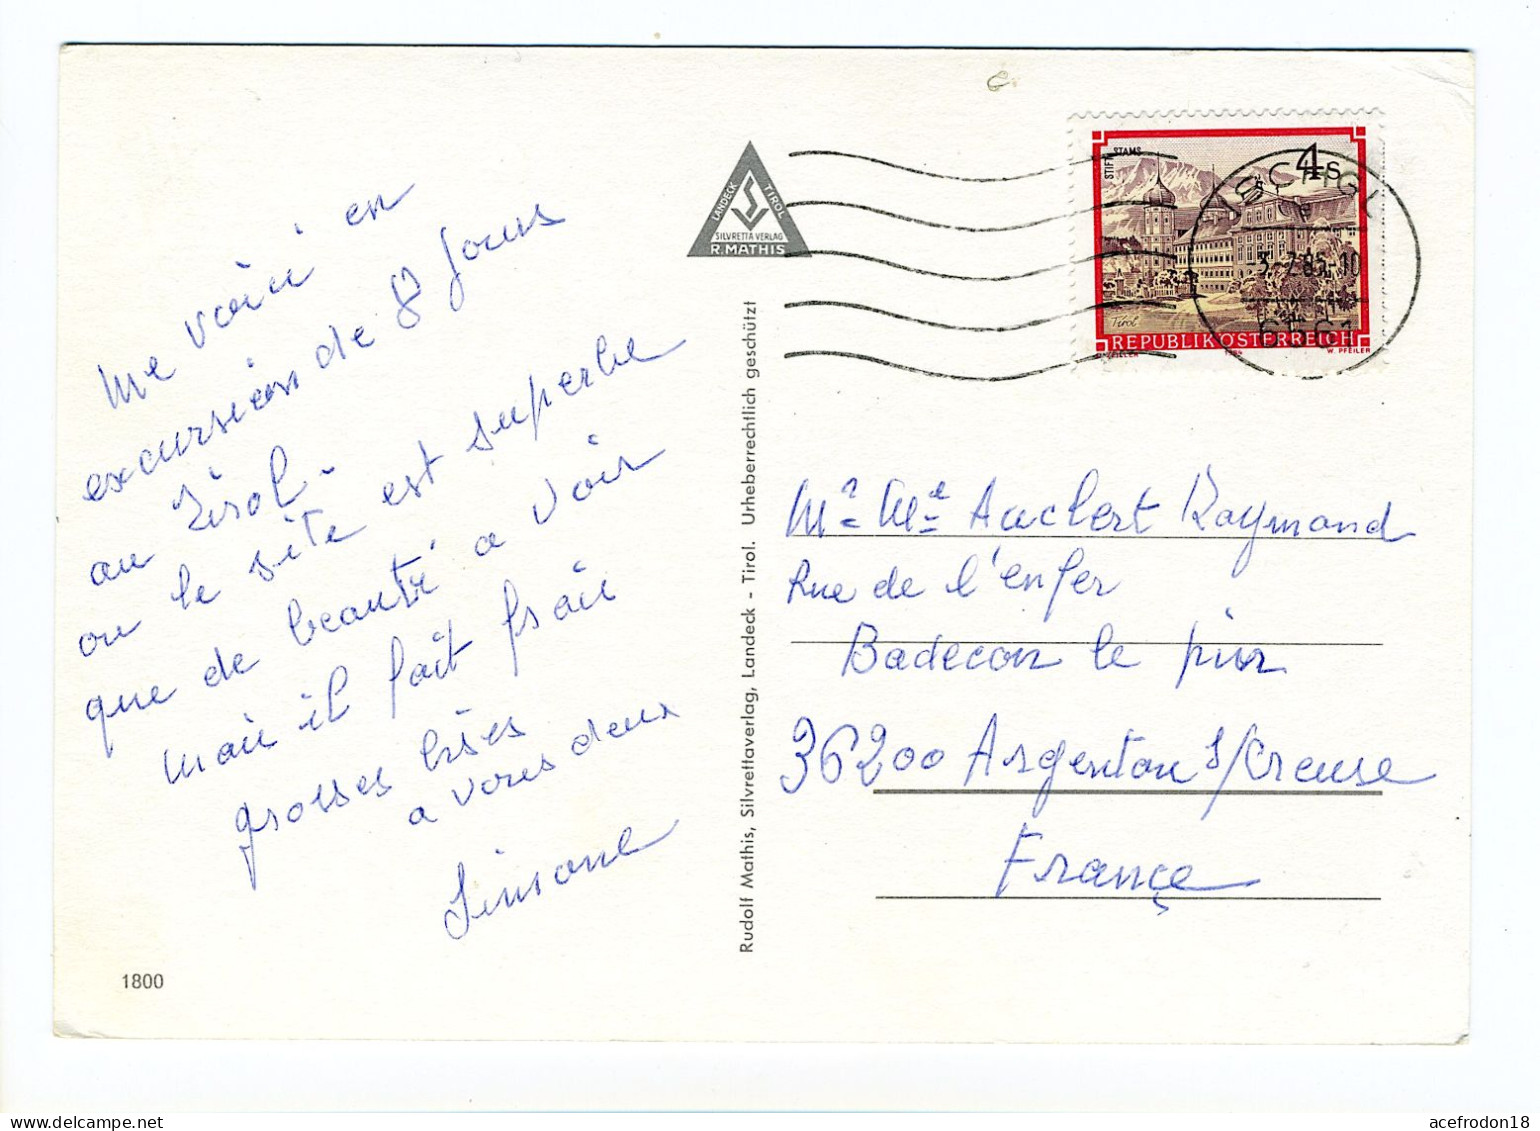 me voici en
excursion de 8 jours
au Tirol.
ou le site est superbe
que de beauté a voir
mais il fait frais
grosses bises
a vous deux
Simone
1800
LANDECK TIROL
SILVRETTA VERLAG
R. MATHIS
Rudolf Mathis, Silvrettaverlag, Landeck - Tirol. Urheberrechtlich geschützt
STIFT STAMS
4s
Tirol
REPUBLIK ÖSTERREICH
W. PFEILER
ISCHGL
6561
Mr Me Auclert Raymond
Rue de l'enfer
Badecon le pin
36200 Argenton s/Creuse
Françe
acefrodon18